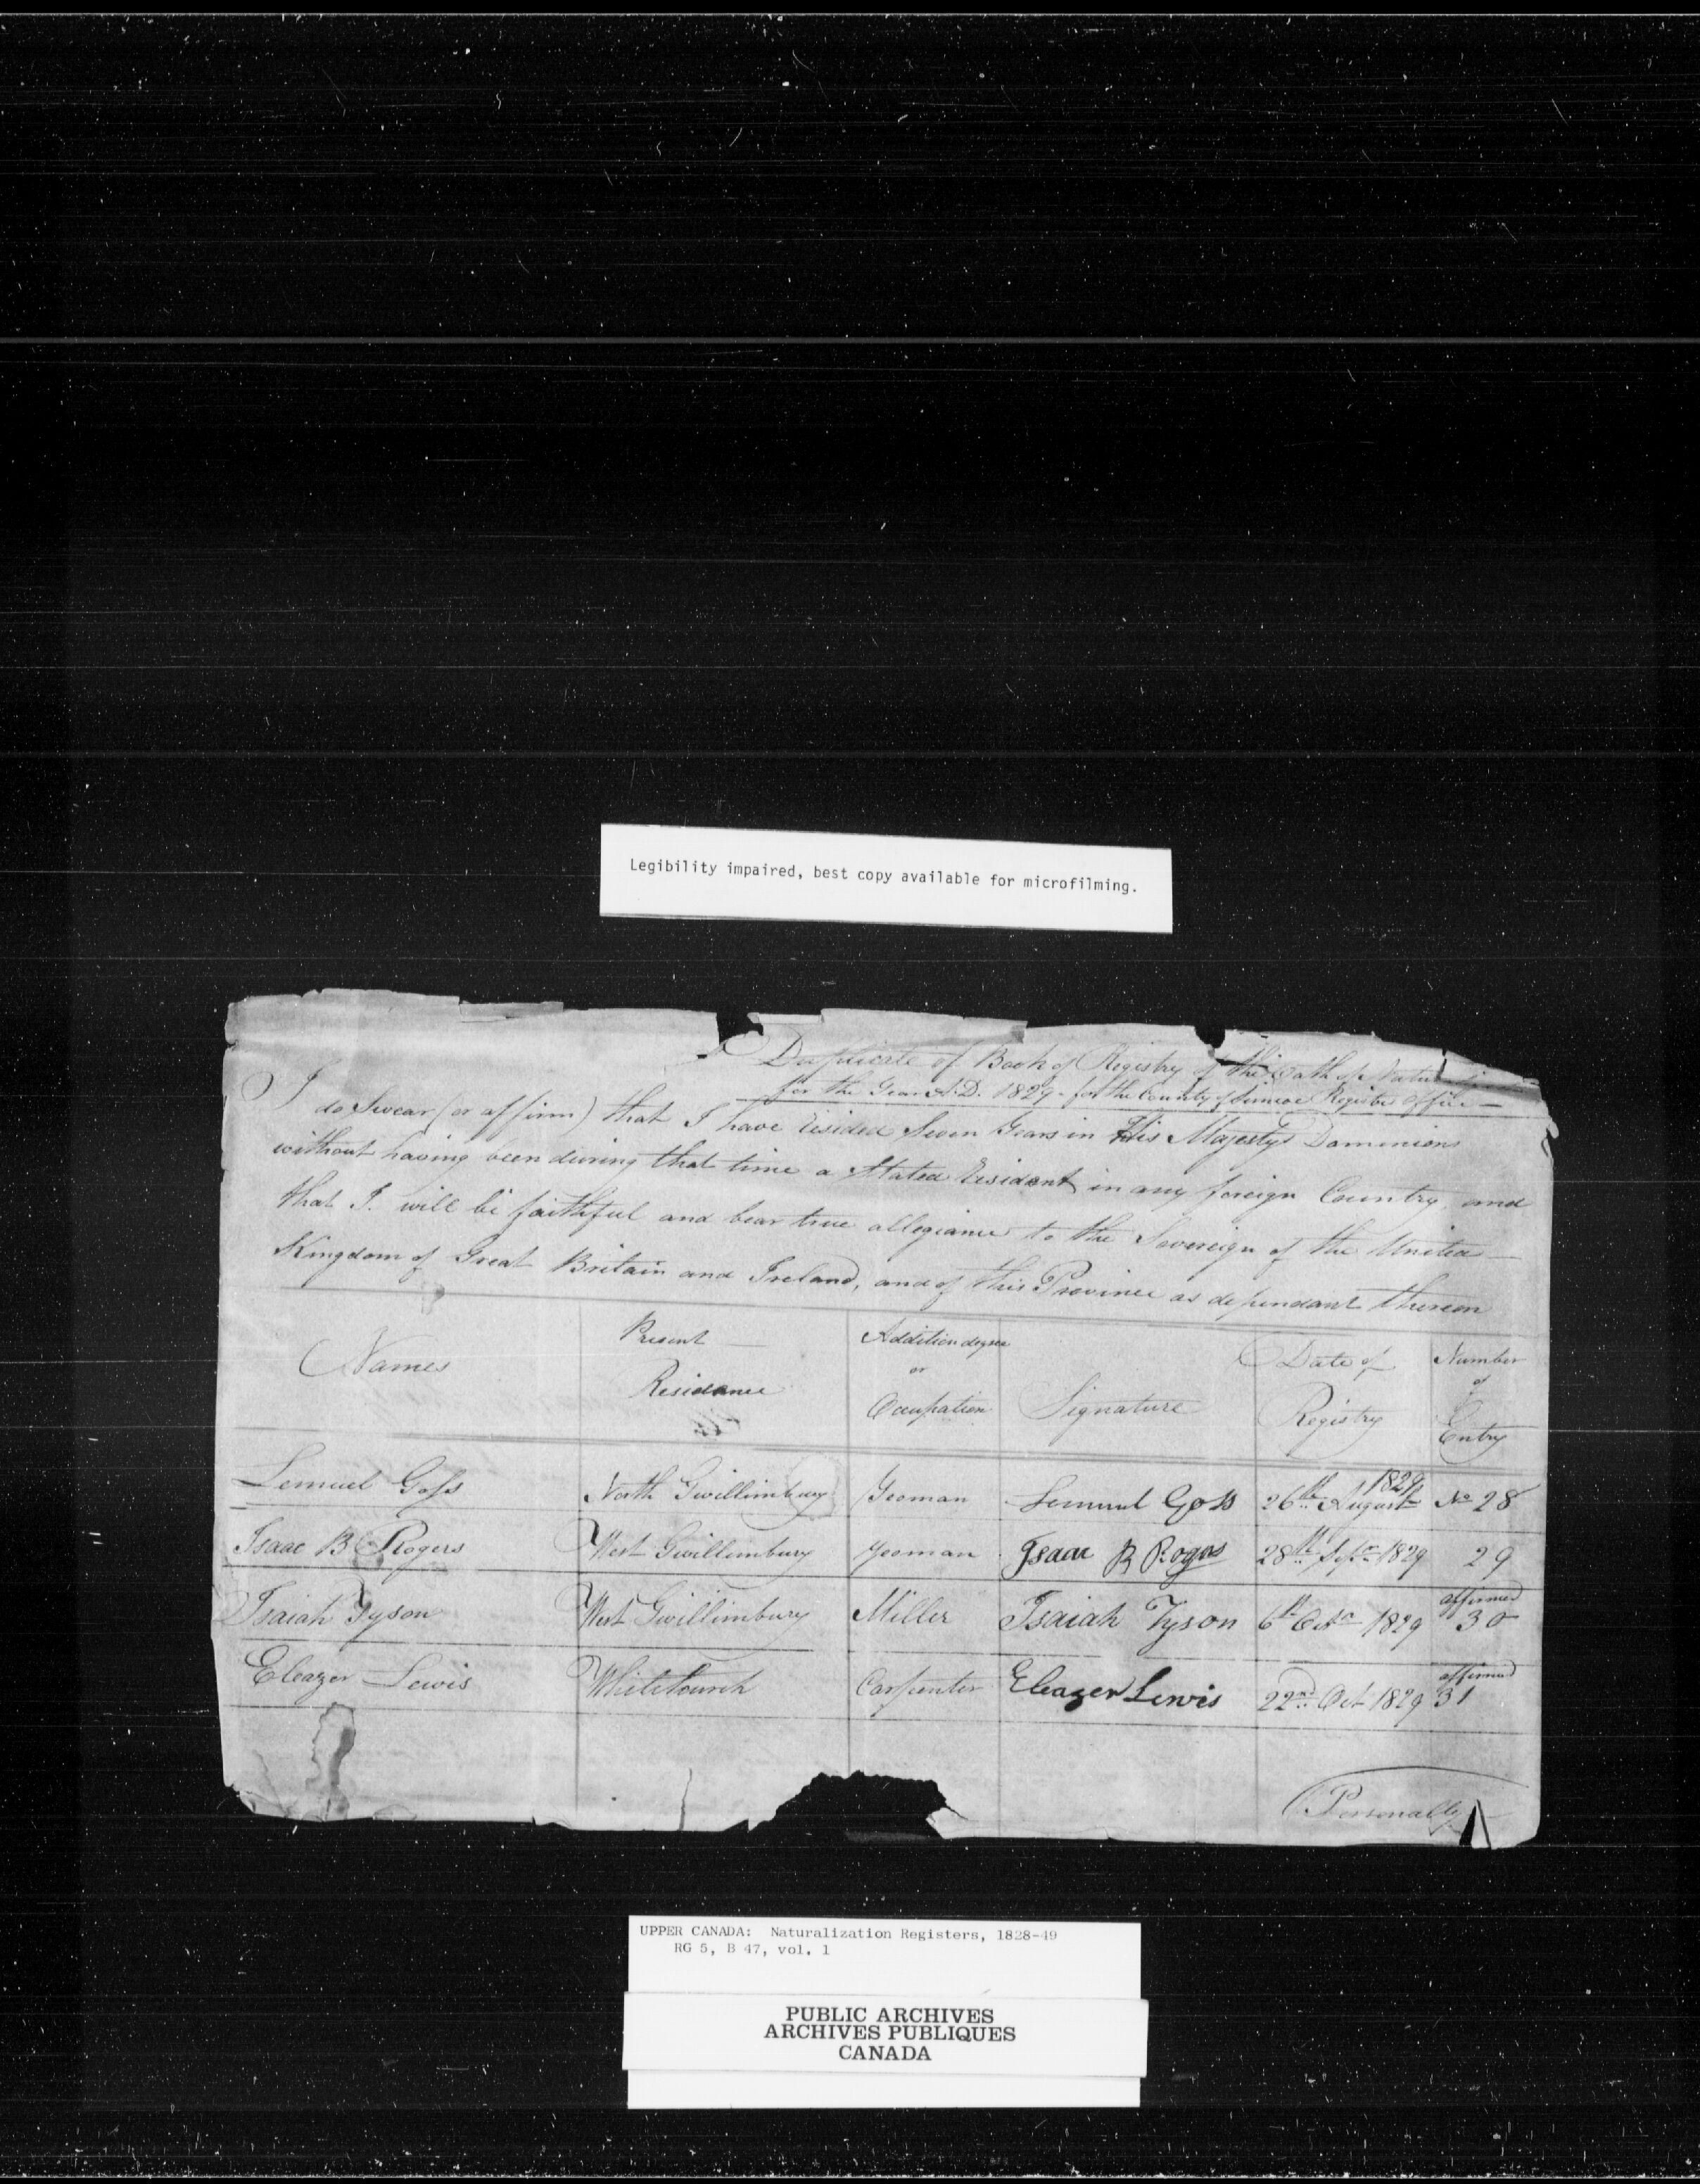 Legibility impaired, best copy available for microfilming.
A Duplicate of Book of Registry of the Oath of
for the Year A.D. 1829. for the County of Simcoe Register Office
I do Swear (or affirm) that I have resided Seven Years in His Majestys Dominions
without having been during that time a Stated resident in any foreign Country, and
that I. will be faithful and bear true allegiance to the Sovereign of the United
Kingdom of Great Britain and Ireland, and of this Province as dependant thereon
Names Present Residence Addition degree or Occupation Signature Date of Registry Number of Entry
Lemuel Goss North Gwillimbury Yeoman Lemuel Goss 26th August 1829 No 28
Isaac B Rogers West Gwillimbury Yeoman Isaac B Rogers 28th Sepr 1829 29
Isaiah Tyson West Gwillimbury Miller Isaiah Tyson 6th Octr 1829 affirmed 30
Eleazer Lewis Whitchurch Carpenter Eleazer Lewis 22nd Oct 1829 affirmed 31
Personally
UPPER CANADA: Naturalization Registers, 1828-49
RG 5, B 47, vol. 1
PUBLIC ARCHIVES
ARCHIVES PUBLIQUES
CANADA